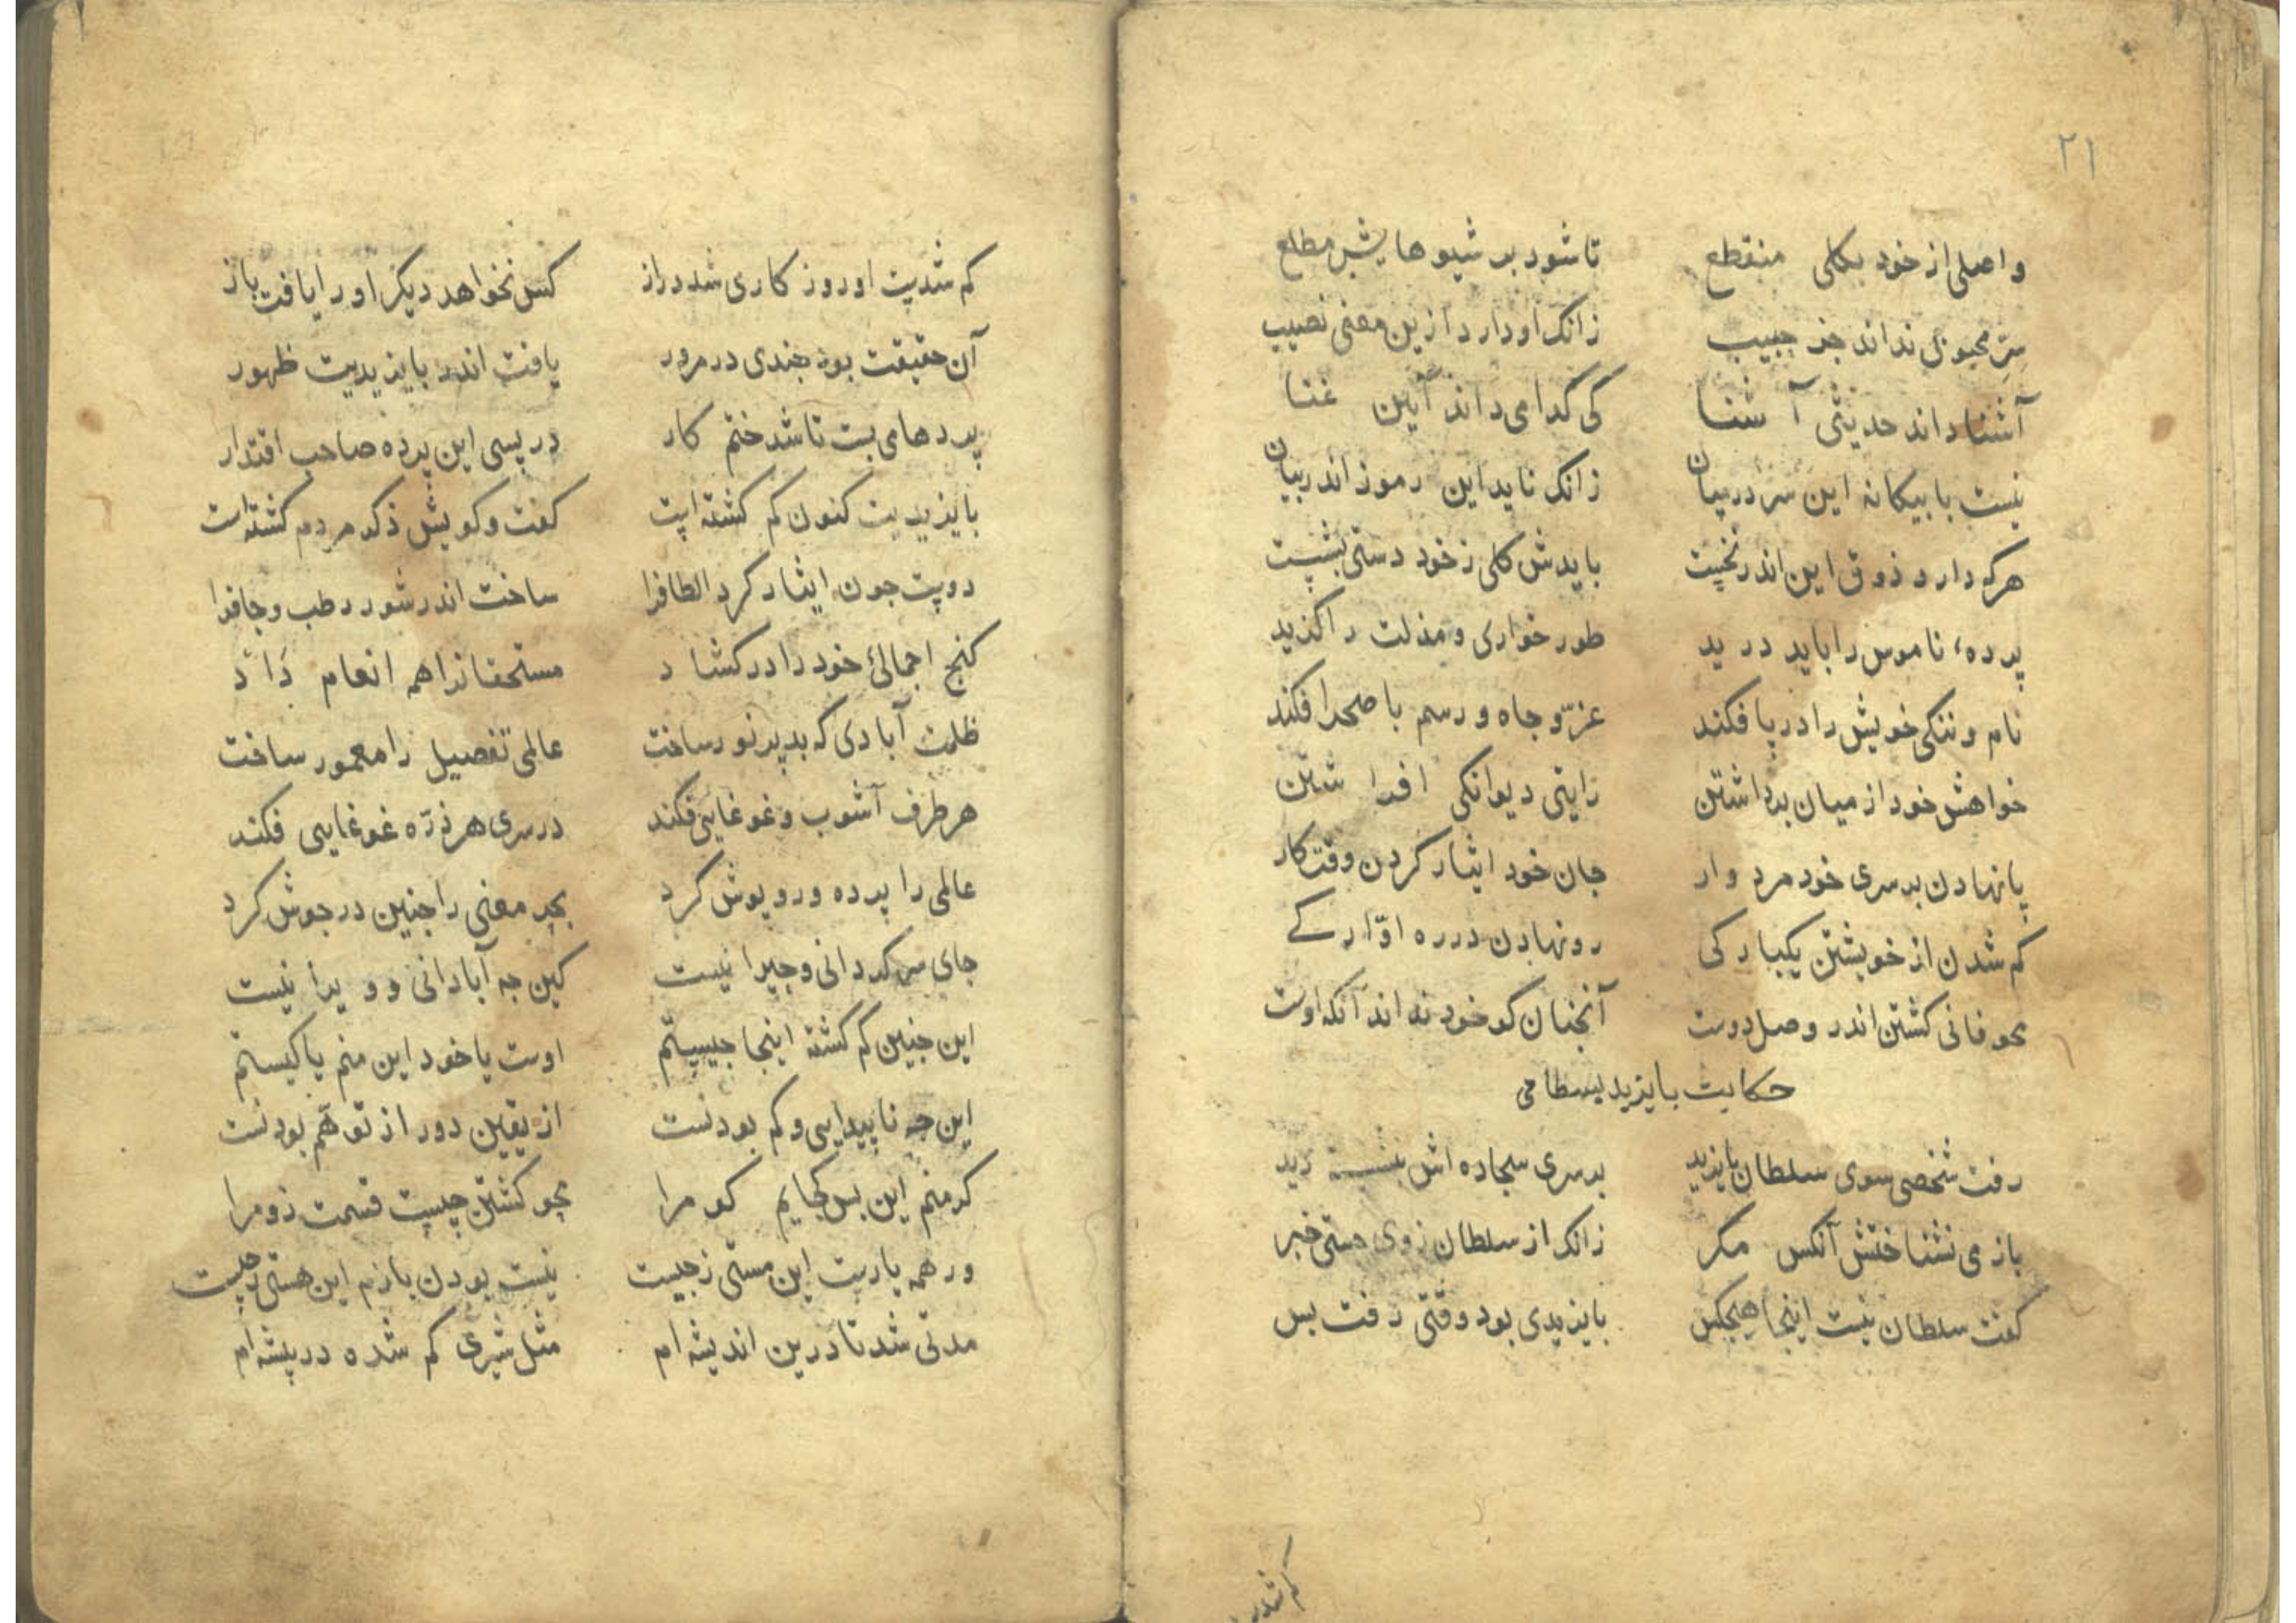 ۲۱
واصلی از خود بکلی منقطع تا شود بر شیوهایش مطلع
سرّ محبوبی نداند جز حبیب زانک او دارد ازین معنی نصیب
آشنا داند حدیثی آشنا کی کدا می داند آیین غنا
نیست با بیکانه این سر در بیان زانک ناید این رموز اندر بیان
هرکه دارد ذوق این اندر نخست بایدش کلی زخود دستی بشست
پرده ناموس را باید درید طور خواری و مذلت را کزید
نام و ننکی خویش را در پا فکند عزّ و جاه و رسم با صحرا فکند
خواهش خود از میان برداشتن رایتی دیوانکی افراشتن
پا نهادن بر سری خود مردوار جان خود ایثار کردن وقت کار
کم شدن از خویشتن یکبارکی رو نهادن در ره آوارکی
محو فانی کشتن اندر وصل دوست آنجنان کو خود نداند آنکه اوست
حکایت بایزید بسطامی
رفت شخصی سوی سلطان بایزید بر سری سجاده اش بنشسته دید
باز می نشناختش آنکس مکر زانک از سلطان زوی جستی خبر
کفت سلطان نیست اینجا هیجکس بایزیدی بود وقتی رفت بس
کم شدست
کم شدست او روزکاری شد دراز کس نخواهد دیکر او را یافت باز
آن حقیقت بود جندی در مرور یافت اندر بایزیدیت ظهور
پردها می بست تا شد ختم کار در پسی این پرده صاحب اقتدار
بایزیدیت کنون کم کشته است کفت و کویش ذکر مردم کشته است
دوست جون ایثار کرد الطافرا ساخت اندر شور رطب و جافرا
کنج اجمالئ خود را در کشاد مستحقانرا همه انعام داد
ظلمت آبادی که بد پر نور ساخت عالمی تفصیل را معمور ساخت
هر طرف آشوب و غوغایی فکند در سری هر ذرّه غوغایی فکند
عالمی را پرده و روپوش کرد بحر معنی را جنین در جوش کرد
جای سرکردانی و حیرانیست کین جه آبادانی و ویرانیست
این جنین کم کشته اینجا جیستم اوست یا خود این منم یا کیستم
این جه ناپیدایی و کم بودنست از یقین دور از توهّم بودنست
کر منم این بس کجایم کو مرا محو کشتن جیست قسمت زو مرا
ور همه یارست این مستی زجیست نیست بودن بازم این هستی زجیست
مدتی شد تا درین اندیشه ام مثل شیری کم شده در بیشه ام